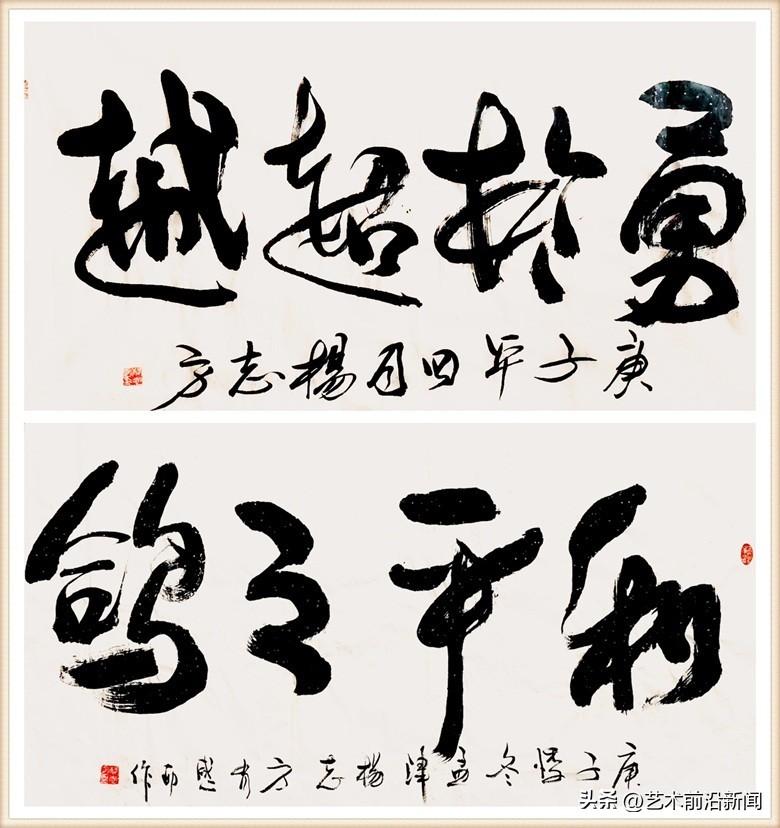 勇於超越
庚子年四月楊志方
和平之鸽
庚子 冬孟津楊志方有感而作
头条 @艺术前沿新闻